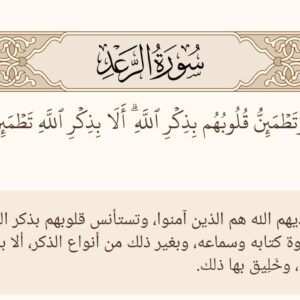 سُورَةُ الرَّعۡدِ
وَتَطۡمَئِنُّ قُلُوبُهُم بِذِكۡرِ ٱللَّهِۗ أَلَا بِذِكۡرِ ٱللَّهِ تَطۡمَئِنُّ
يهم الله هم الذين آمنوا، وتستأنس قلوبهم بذكر
وة كتابه وسماعه، وبغير ذلك من أنواع الذكر، ألا
، وخَلِيق بها ذلك.